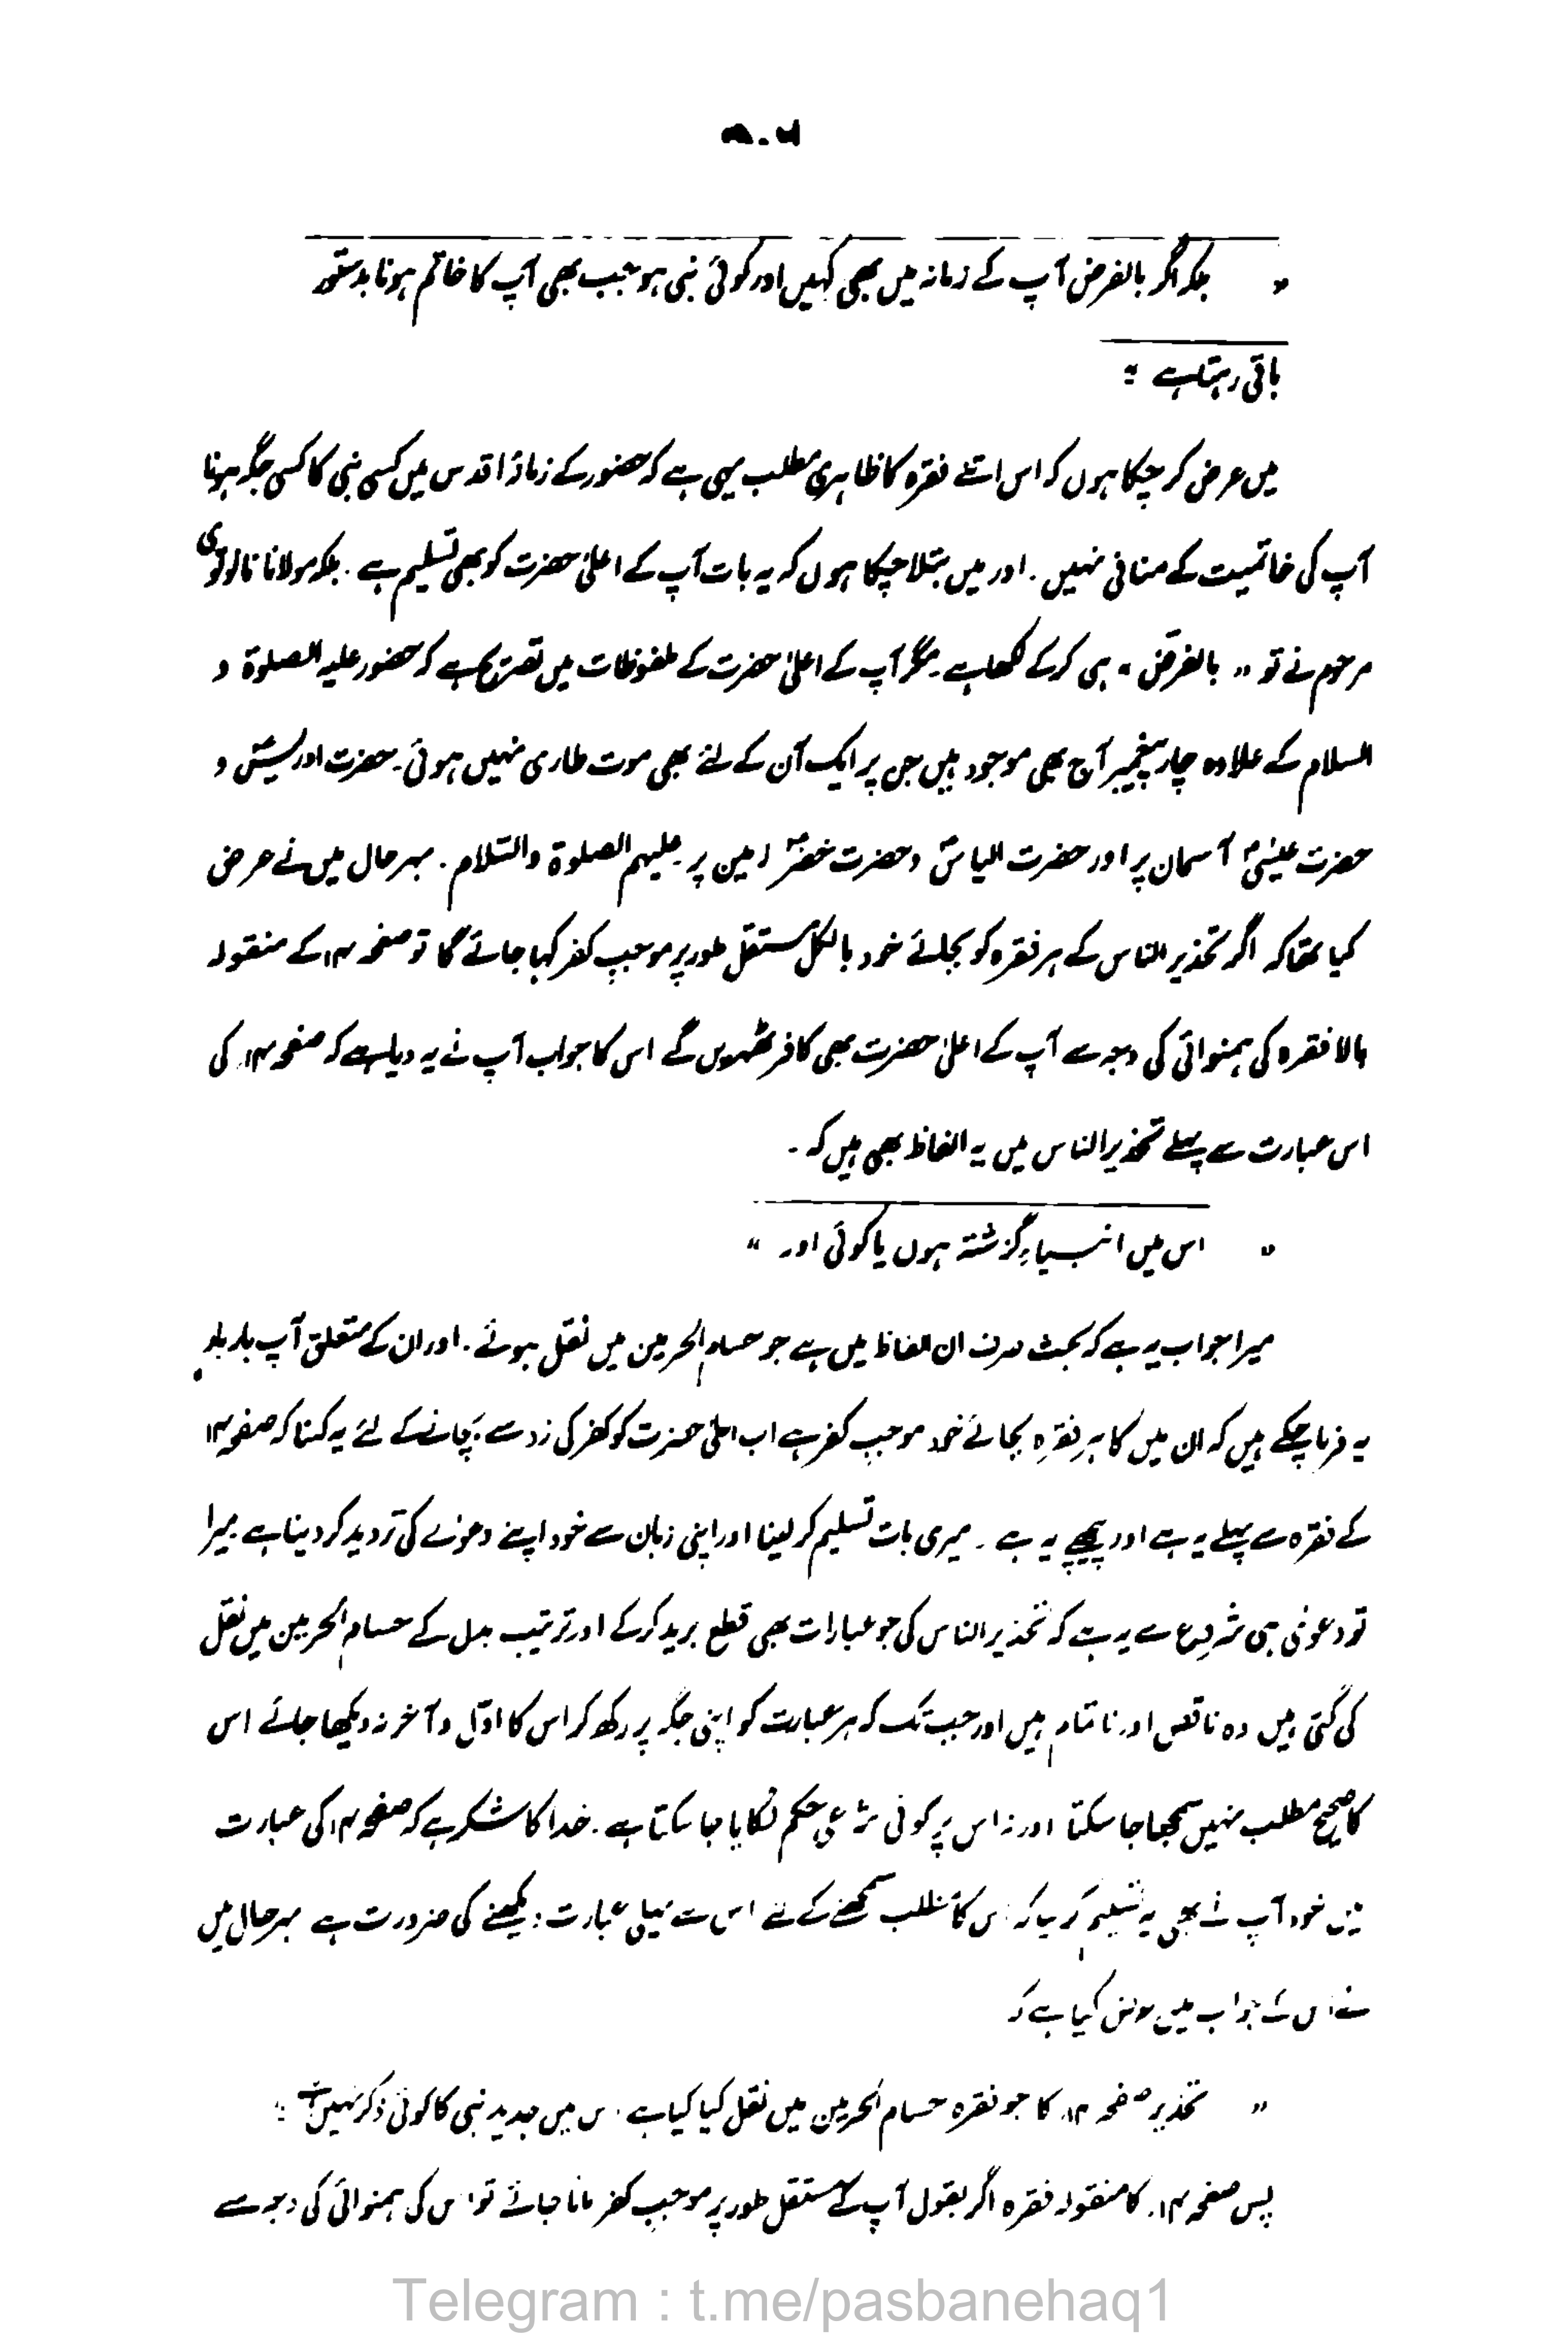 „ بلکہ اگر بالفرض آپ کے زمانہ میں بھی کہیں اور کوئی نبی ہو جب بھی آپ کا خاتم ہونا بدستور
باقی رہتا ہے "
میں عرض کر چکا ہوں کہ اس اتنے فقرہ کا ظاہری مطلب یہی ہے کہ حضور کے زمانۂ اقدس میں کسی نبی کا کسی جگہ ہونا
آپ کی خاتمیت کے منافی نہیں ۔ اور میں بتلا چکا ہوں کہ یہ بات آپ کے اعلیٰ حضرت کو بھی تسلیم ہے ۔ بلکہ مولانا نانوتوی
مرحوم نے تو „ بالفرض " ہی کرکے لکھا ہے ۔ مگر آپ کے اعلیٰ حضرت کے ملفوظات میں تصریح ہے کہ حضور علیہ الصلوۃ و
السلام کے علاوہ چار پیغمبر آج بھی موجود ہیں جن پر ایک آن کے لئے بھی موت طاری نہیں ہوئی ۔ حضرت ادریسؑ و
حضرت عیسیٰؑ آسمان پر اور حضرت الیاسؑ و حضرت خضرؑ زمین پر ۔ علیہم الصلوۃ والسّلام ۔ بہرحال میں نے عرض
کیا تھا کہ اگر تحذیر الناس کے ہر فقرہ کو بجائے خود بالکل مستقل طور پر موجب کفر کہا جائے گا تو صفحہ ۱۴ کے منقولہ
بالا فقرہ کی ہمنوائی کی وجہ سے آپ کے اعلیٰ حضرت بھی کافر ٹھہریں گے اس کا جواب آپ نے یہ دیا ہے کہ صفحہ ۱۴ کی
اس عبارت سے پہلے تحذیر الناس میں یہ الفاظ بھی ہیں کہ ۔
„ اس میں انبیاء گزشتہ ہوں یا کوئی اور "
میرا جواب یہ ہے کہ بحث صرف ان الفاظ میں ہے جو حسام الحرمین میں نقل ہوئے ۔ اور ان کے متعلق آپ بار بار
یہ فرما چکے ہیں کہ ان میں کا ہر فقرہ بجائے خود موجب کفر ہے اب اعلیٰ حضرت کو کفر کی زد سے بچانے کے لئے یہ کہنا کہ صفحہ ۱۴
کے فقرہ سے پہلے یہ ہے اور پیچھے یہ ہے ۔ میری بات تسلیم کر لینا اور اپنی زبان سے خود اپنے دعوے کی تردید کر دینا ہے ۔ میرا
تو دعویٰ ہی شروع سے یہ ہے کہ تحذیر الناس کی جو عبارات بھی قطع برید کرکے اور ترتیب بدل کے حسام الحرمین میں نقل
کی گئی ہیں وہ ناقص اور ناتمام ہیں اور جب تک کہ ہر عبارت کو اپنی جگہ پر رکھ کر اس کا اوّل و آخر نہ دیکھا جائے اس
کا صحیح مطلب نہیں سمجھا جا سکتا اور نہ اس پر کوئی شرعی حکم لگایا جا سکتا ہے ۔ خدا کا شکر ہے کہ صفحہ ۱۴ کی عبارت
میں خود آپ نے بھی یہ تسلیم کر لیا کہ اس کا مطلب سمجھنے کے لئے اس سے پہلی عبارت دیکھنے کی ضرورت ہے بہرحال میں
نے اس کے جواب میں عرض کیا ہے کہ
„ تحذیر صفحہ ۱۴ کا جو فقرہ حسام الحرمین میں نقل کیا گیا ہے اس میں جدید نبی کا کوئی ذکر نہیں ہے "
پس صفحہ ۱۴ کا منقولہ فقرہ اگر بقول آپ کے مستقل طور پر موجب کفر مانا جائے تو اس کی ہمنوائی کی وجہ سے
Telegram : t.me/pasbanehaq1